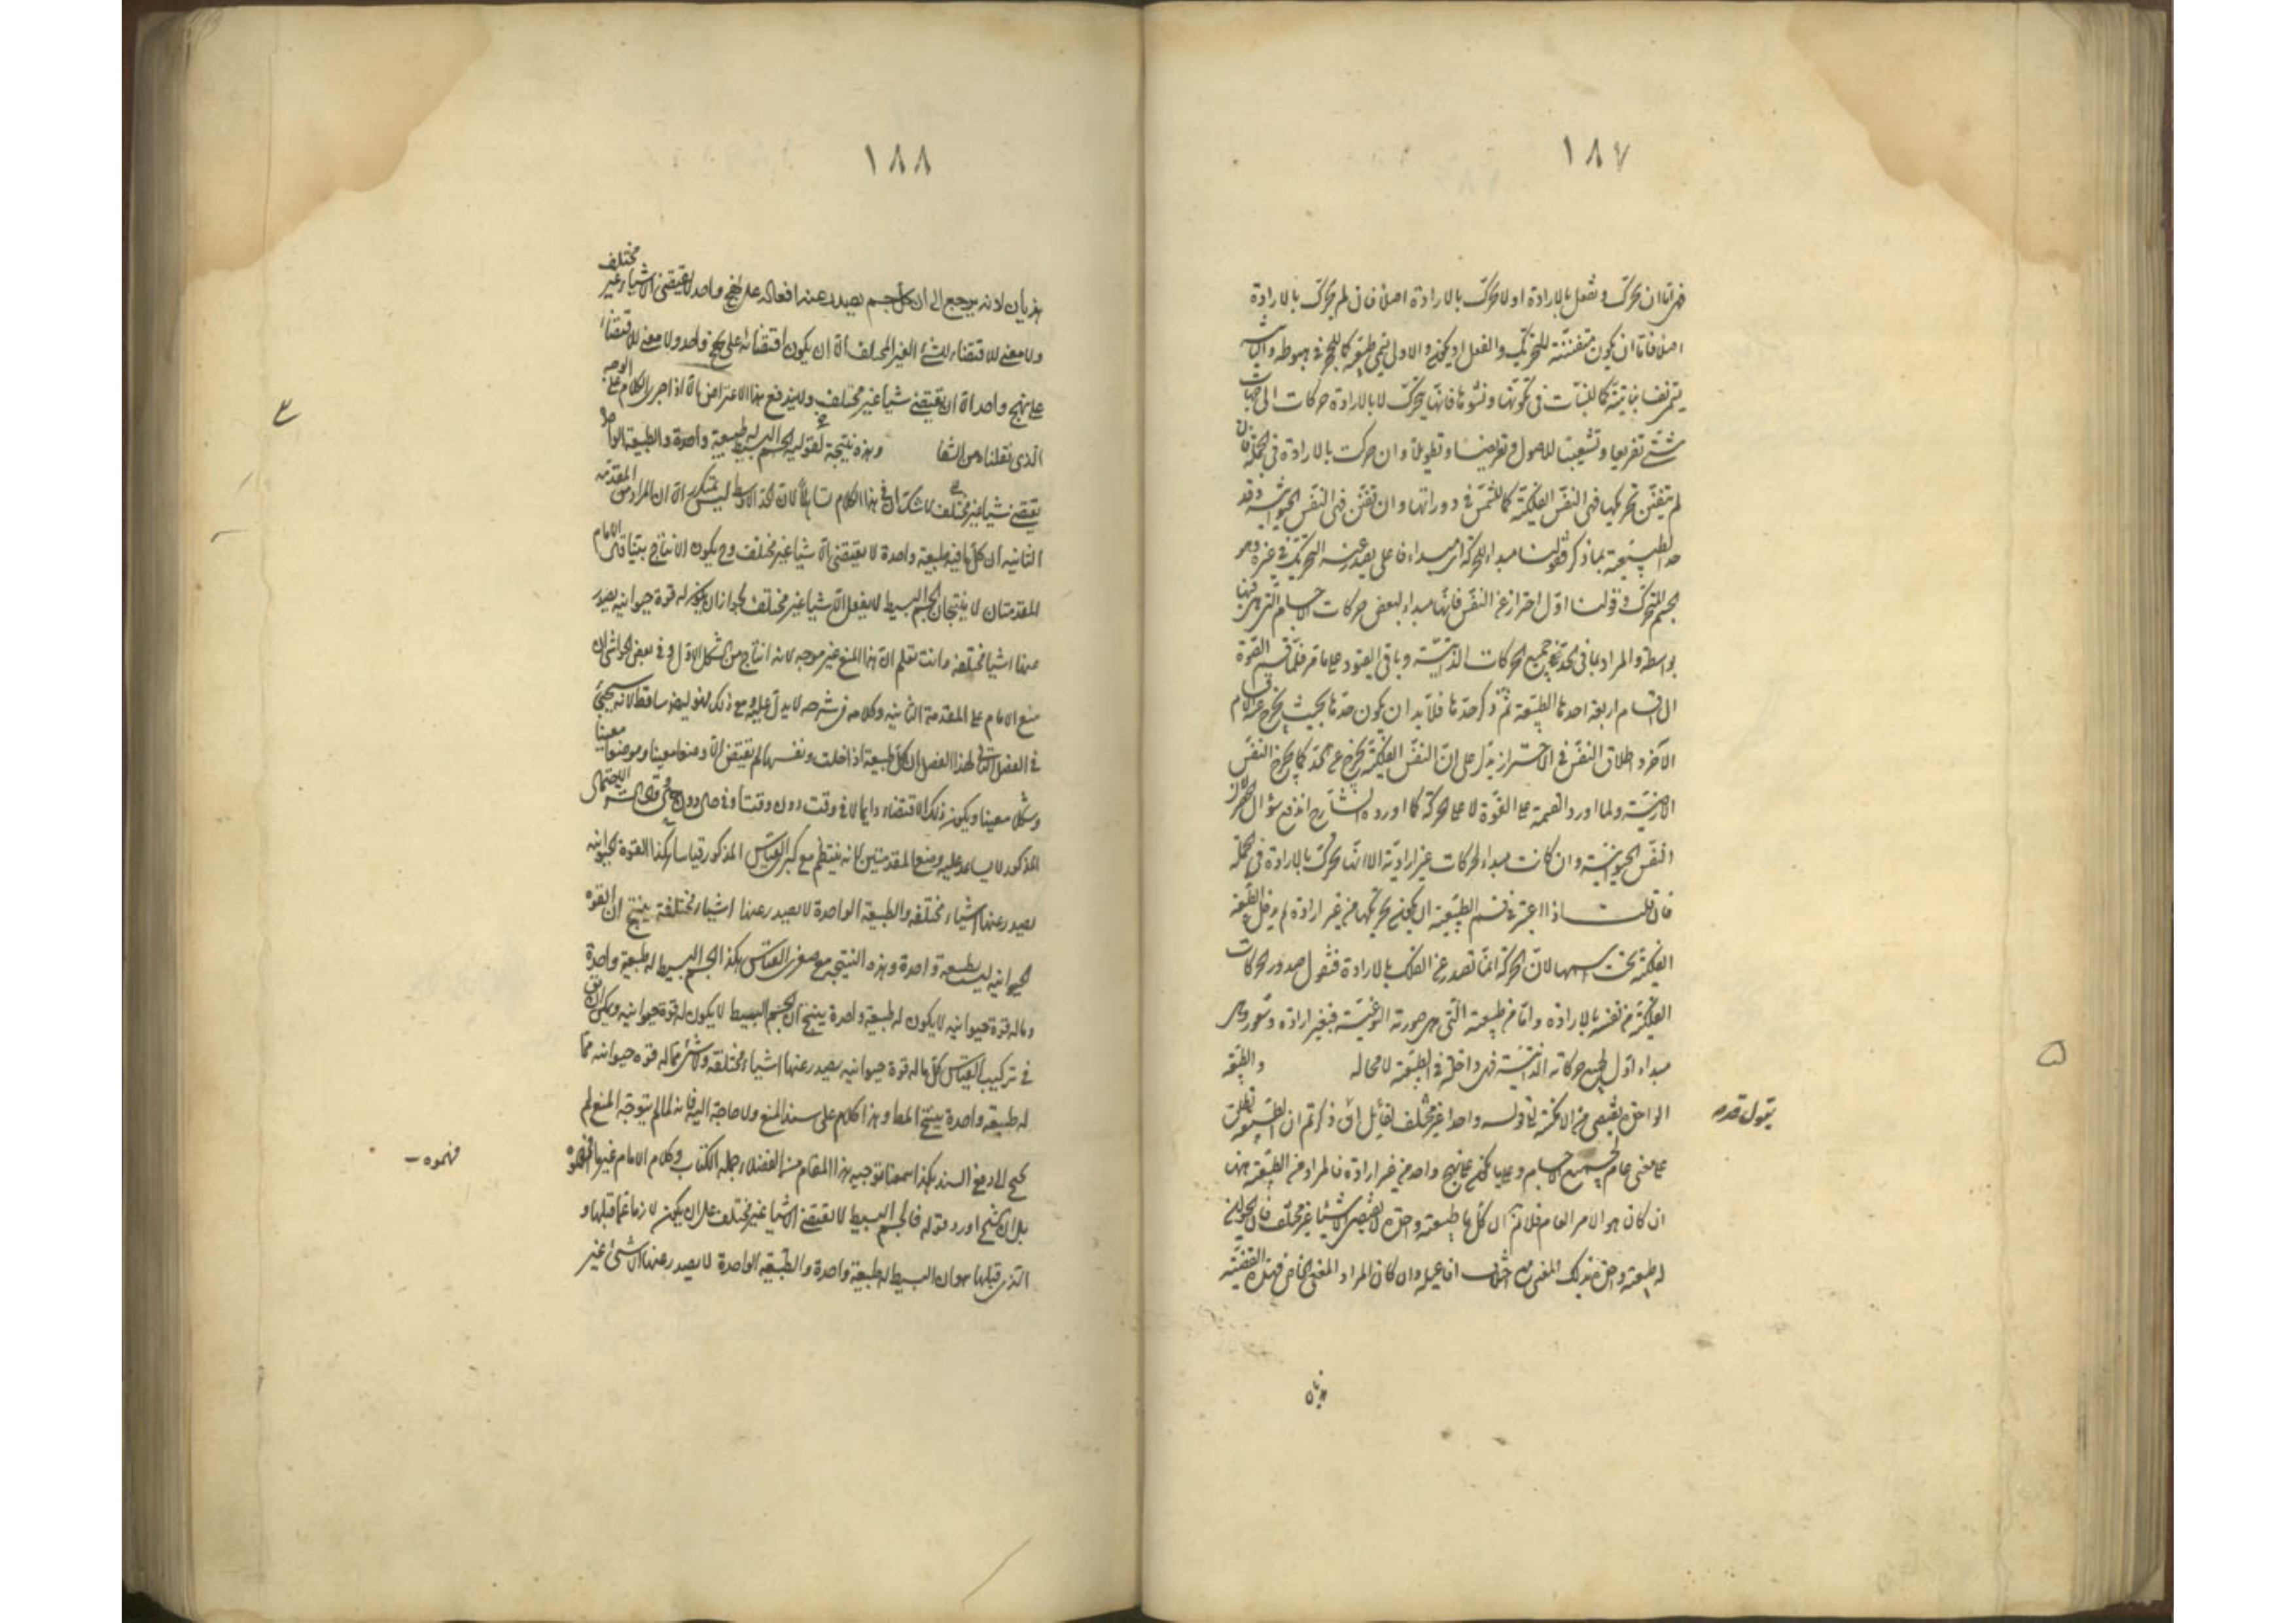 ١٨٧
فهى اما ان تحرك وتفعل بالارادة او لا تحرك بالارادة اصلا فان لم تحرك بالارادة
اصلا فاما ان يكون متفننة للتحريك والفعل او لا يكون والاول يسمى طبيعة كما للحجر فى هبوطه والثا
يسمى نفسا نباتية كما للنبات فى تكونها ونشوها فانها يتحرك لا بالارادة حركات الى جهات
شتى تفريعا وتشعيبا للاصول وتعريضا وتطويلا وان حركت بالارادة فى الجملة فان
لم يتفنن تحريكها فهى النفس الفلكية كما للشمس فى دورانها وان تفنن فهى النفس الحيوانية وقد
حد الطبيعة بما ذكر فقولنا مبداء للحركة اى مبداء فاعلى يصدر عنه التحريك فى غيره وهو
الجسم المتحرك وقولنا اول احتراز عن النفس فانها مبداء لبعض حركات الاجسام التى هى فيها
بواسطة والمراد بما فى الحد جميع الحركات الذاتية وباقى القيود على ما مر فلما قسم القوة
الى اقسام اربعة احدها الطبيعة ثم ذكر حدها فلا بد ان يكون حدها بحيث يخرج عنه الاقسام
الآخر واطلاق النفس فى الاحتراز يدل على ان النفس الفلكية يخرج عن الحد كما يخرج النفس
الارضية ولما اورد القسمة على القوة لا على الحركة كما اورده الشارح اندفع سؤال لان
النفس الحيوانية وان كانت مبداء لحركات غير ارادية الا انها تحرك بالارادة فى الجملة
فان قلت اذا اعتبر فى قسم الطبيعة ان يكون تحريكها من غير ارادة لم يدخل الطبيعة
الفلكية تحت رسمها لان الحركة انما تصدر عن الفلك بالارادة فنقول صدور الحركات
الفلكية من نفسه بالارادة واما من طبيعته التى هى صورته النوعية فبغير ارادة وشعور وهى
مبداء اول لجميع حركاته الذاتية فهى داخلة فى الطبيعة لا محالة والطبيعة
الواحدة يقتضى من الامكنة واحدا غير مختلف لقايل ان ذكرتم ان الطبيعة تطلق
على معنى عام لجميع الاجسام وعلى ما يكون على نهج واحد من غير ارادة فالمراد من الطبيعة هنا
ان كان هو الامر العام فلا نم ان كل ما له طبيعة واحدة لا يقتضى الا شيئا غير مختلف فان الحيوان
له طبيعة واحدة بذلك المعنى مع اختلاف افاعيله وان كان المراد المعنى الخاص فهذه القضية
هذيان
يقول قدس
١٨٨
هذيان لانه يرجع الى ان كل جسم يصدر عنه افعاله على نهج واحد لا يقتضى الا شيئا غير مختلف
ولا معنى للاقتضاء للشئ الغير المختلف الا ان يكون اقتضائه على نهج واحد ولا معنى للاقتضاء
على نهج واحد الا ان يقتضى شيئا غير مختلف ولا يندفع هذا الاعتراض بالا اذا اجرى الكلام على الوجه
الذى نقلناه من الشفا وهذه نتيجة لقوله الجسم البسيط له طبيعة واحدة والطبيعة الواحدة
يقتضى شيئا غير مختلف لا شك ان فى هذا الكلام تساهلا لان الحد الاوسط ليس بمتكرر الا ان المراد من المقدمة
الثانية ان كل ما فيه طبيعة واحدة لا يقتضى الا شيئا غير مختلف وح يكون الانتاج بينا قال الامام
المقدمتان لا ينتجان ان الجسم البسيط لا يفعل الا شيئا غير مختلف لجواز ان يكون له قوة حيوانية يصدر
عنها اشيا مختلفة وانت تعلم ان هذا المنع غير موجه لانه انتاج من الشكل الاول وفى بعض الحواشى ان
منع الامام على المقدمة الثانية وكلامه فى شرحه لا يدل عليه ومع ذلك فهو ايضا ساقط لانه سيجئ
فى الفصل التالى لهذا الفصل ان كل طبيعة اذا خليت ونفسها لم يقتض الا وضعا معينا وموضعا معينا
وشكلا معينا ويكون ذلك الاقتضاء دايما لا فى وقت دون وقت او فى حال دون حال الاحتمال
المذكور لا يساعد عليه ومنع المقدمتين كانه ينتظم مع كبرى القياس المذكور قياسا هكذا القوة الحيوانية
يصدر عنها اشياء مختلفة والطبيعة الواحدة لا يصدر عنها اشياء مختلفة ينتج ان القوة
الحيوانية ليست طبيعة واحدة وهذه النتيجة مع صغرى القياس هكذا الجسم البسيط له طبيعة واحدة
وما له قوة حيوانية لا يكون له طبيعة واحدة ينتج ان الجسم البسيط لا يكون له قوة حيوانية ويمكن ان يق
فى تركيب القياس كل ما له قوة حيوانية يصدر عنها اشياء مختلفة ولا شئ مما له قوة حيوانية مما
له طبيعة واحدة ينتج المط وهذا كلام على سند المنع ولا حاجة اليه فانه لما لم يتوجه المنع لم
يحتج الى دفع السند هكذا اسمعنا توجيه هذا المقام من الفضلاء وجملة الكتاب وكلام الامام غير ما فهموه
بل ان الشيخ اورد قوله فالجسم البسيط لا يقتضى الا شيئا غير مختلف على ان يكون لازما عما قبلها و
الذى قبلها هو ان البسيط له طبيعة واحدة والطبيعة الواحدة لا يصدر عنها الا شئ غير
فهموه